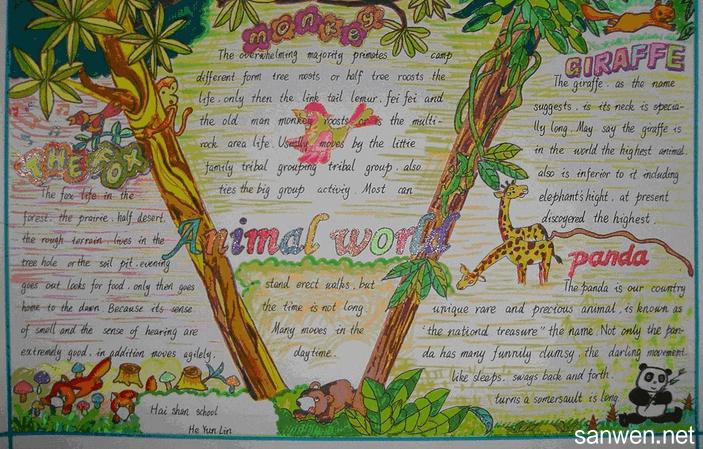 monkey
The overwhelming majority primates camp
different form tree roosts or half tree roosts the
life. only then the link tail lemur. fei fei and
the old man monkey roosts or is the multi-
rock area life. Usually moves by the little
family tribal grouping tribal group. also
ties the big group activiy. Most can
stand erect walks. but
the time is not long.
Many moves in the
daytime.
THE FOX
The fox life in the
forest. the prairie. half desert.
the rough terrain. lives in the
tree hole or the soil pit. evening
goes out looks for food. only then goes
home to the dawn Because its sense
of smell and the sense of hearing are
extremely good. in addition moves agilely.
Animal world
GIRAFFE
The giraffe. as the name
suggests. is its neck is especia-
lly long. May say the giraffe is
in the world the highest animal.
also is inferior to it including
elephant's hight. at present
discogered the highest.
panda
The panda is our country
unique rare and precious animal. is known as
"the nationd treasure" the name. Not only the pan-
da has many funnily clumsy. the darling movement.
like sleeps. sways back and forth.
turns a somersault is long.
Hai shan school
He Yun Lin
sanwen.net